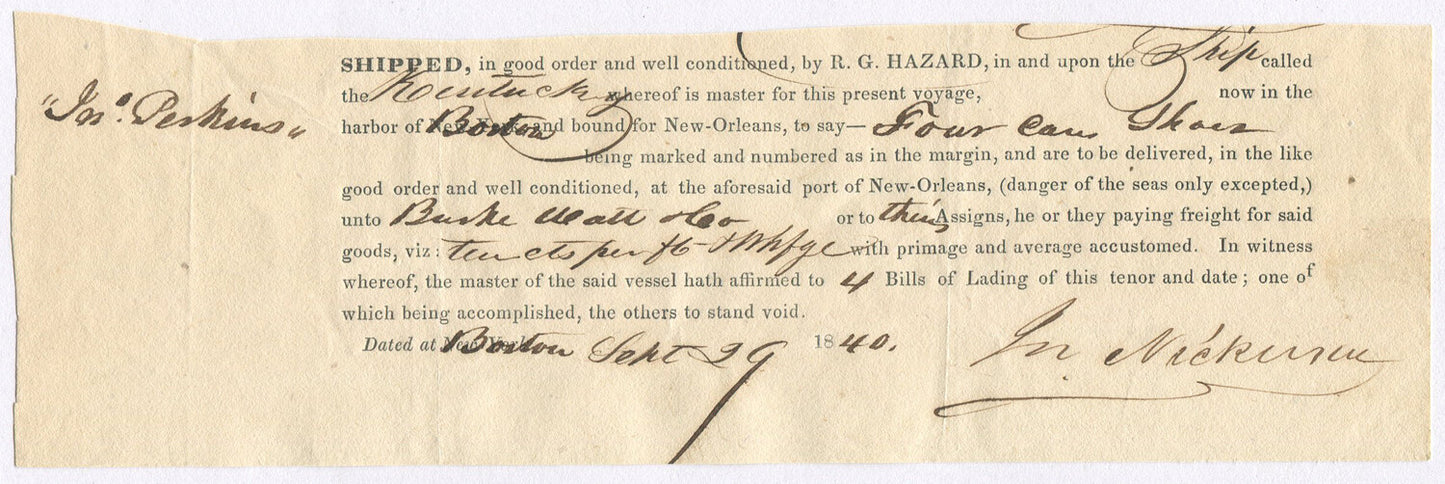 "Jnᵒ. Perkins"
SHIPPED, in good order and well conditioned, by R. G. HAZARD, in and upon the Ship called
the Kentucky whereof is master for this present voyage, now in the
harbor of Boston and bound for New-Orleans, to say— Four cases Shoes
being marked and numbered as in the margin, and are to be delivered, in the like
good order and well conditioned, at the aforesaid port of New-Orleans, (danger of the seas only excepted,)
unto Burke Watt & Co or to their Assigns, he or they paying freight for said
goods, viz: ten cts per ft & Whfge with primage and average accustomed. In witness
whereof, the master of the said vessel hath affirmed to 4 Bills of Lading of this tenor and date; one of
which being accomplished, the others to stand void.
Dated at Boston Sept 29 1840.
Jn. Nickerson